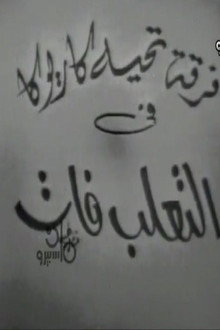 فرقة تحية كاريوكا
فى
الثعلب فات